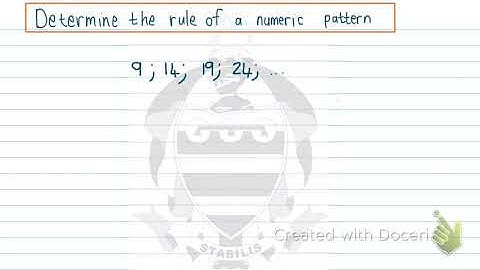 Determine the rule of a numeric pattern
9 ; 14 ; 19 ; 24 ; ...
STABILIS
Created with Doceri